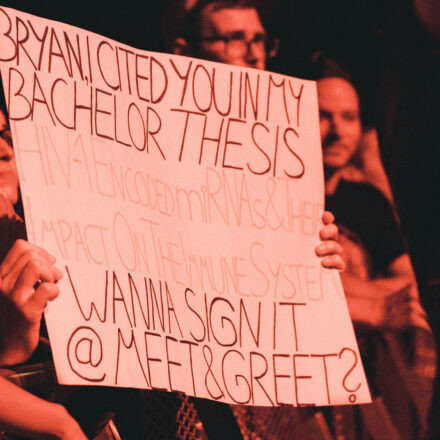 BRYAN, I CITED YOU IN MY
BACHELOR THESIS
HIV-1 ENCODED miRNAs & THEIR
IMPACT ON THE IMMUNE SYSTEM
WANNA SIGN IT
@ MEET & GREET?